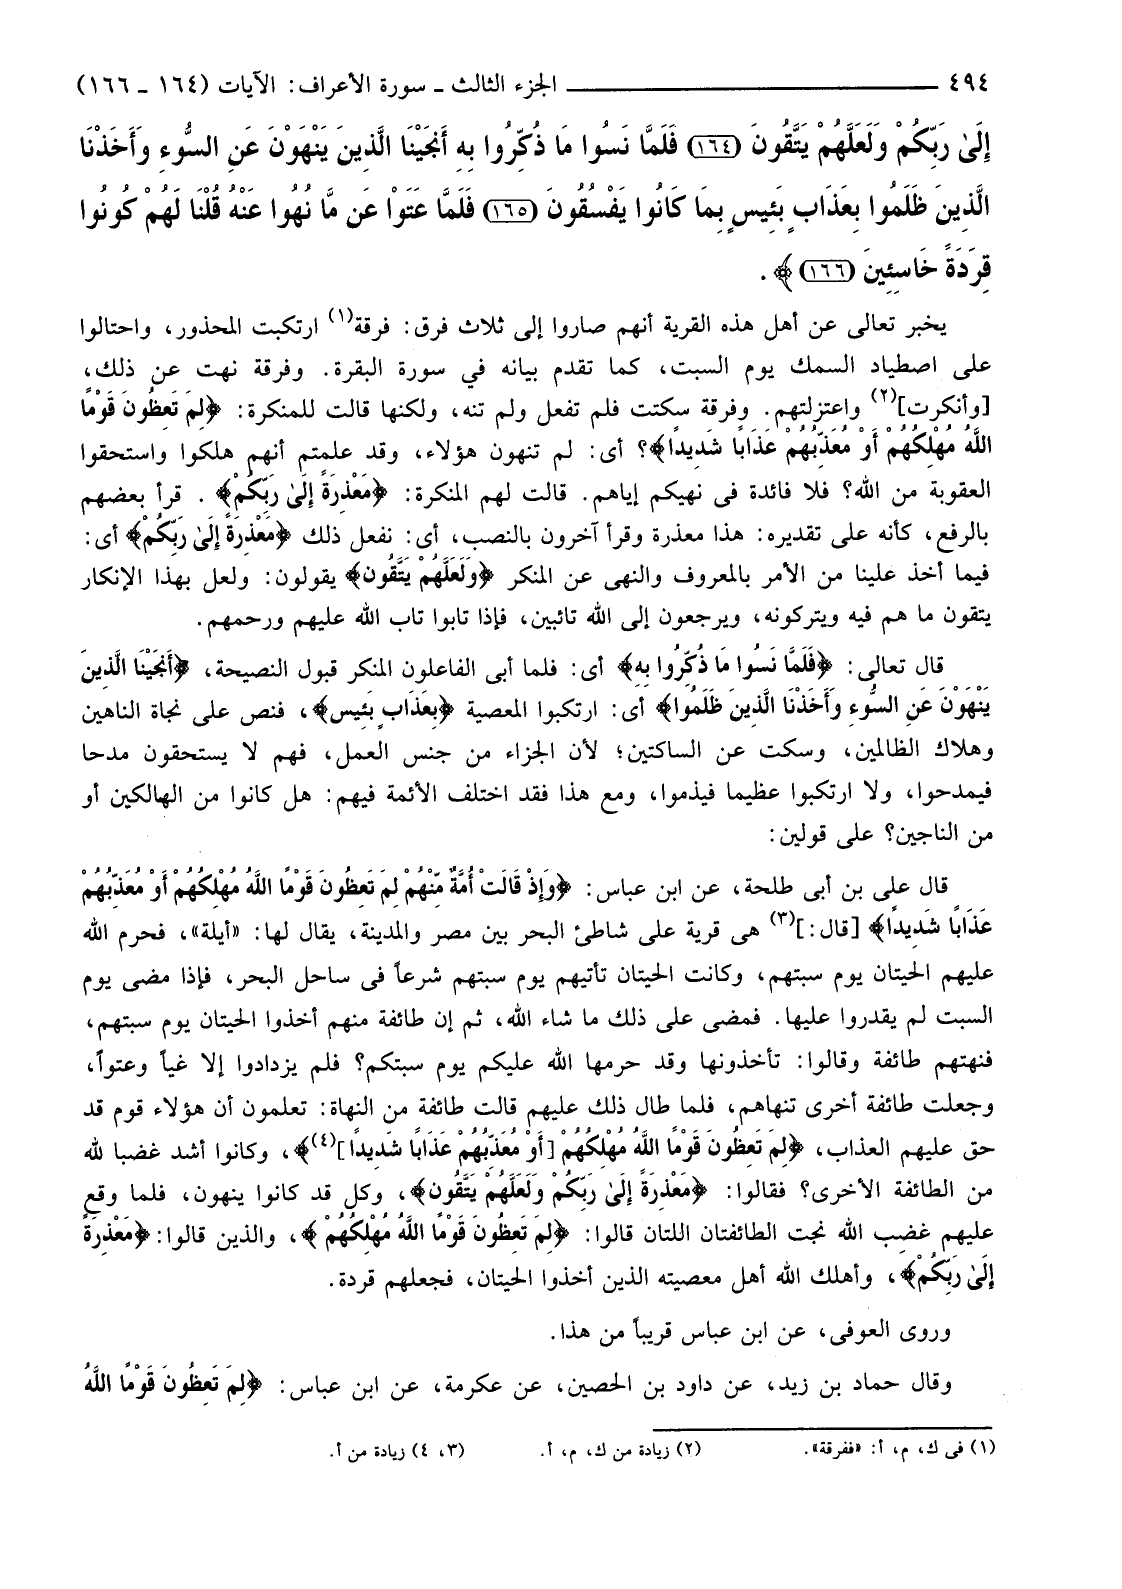 ٤٩٤ ــــــــــــــــــــــــــــــــ الجزء الثالث ـ سورة الأعراف: الآيات (١٦٤ ـ ١٦٦)
إِلَىٰ رَبِّكُمْ وَلَعَلَّهُمْ يَتَّقُونَ (١٦٤) فَلَمَّا نَسُوا مَا ذُكِّرُوا بِهِ أَنجَيْنَا الَّذِينَ يَنْهَوْنَ عَنِ السُّوءِ وَأَخَذْنَا
الَّذِينَ ظَلَمُوا بِعَذَابٍ بَئِيسٍ بِمَا كَانُوا يَفْسُقُونَ (١٦٥) فَلَمَّا عَتَوْا عَن مَّا نُهُوا عَنْهُ قُلْنَا لَهُمْ كُونُوا
قِرَدَةً خَاسِئِينَ (١٦٦)﴾ .
يخبر تعالى عن أهل هذه القرية أنهم صاروا إلى ثلاث فرق: فرقة(١) ارتكبت المحذور، واحتالوا
على اصطياد السمك يوم السبت، كما تقدم بيانه في سورة البقرة. وفرقة نهت عن ذلك،
[وأنكرت](٢) واعتزلتهم. وفرقة سكتت فلم تفعل ولم تنه، ولكنها قالت للمنكرة: ﴿لِمَ تَعِظُونَ قَوْمًا
اللَّهُ مُهْلِكُهُمْ أَوْ مُعَذِّبُهُمْ عَذَابًا شَدِيدًا﴾؟ أى: لم تنهون هؤلاء، وقد علمتم أنهم هلكوا واستحقوا
العقوبة من الله؟ فلا فائدة فى نهيكم إياهم. قالت لهم المنكرة: ﴿مَعْذِرَةً إِلَىٰ رَبِّكُمْ﴾ . قرأ بعضهم
بالرفع، كأنه على تقديره: هذا معذرة وقرأ آخرون بالنصب، أى: نفعل ذلك ﴿مَعْذِرَةً إِلَىٰ رَبِّكُمْ﴾ أى:
فيما أخذ علينا من الأمر بالمعروف والنهى عن المنكر ﴿وَلَعَلَّهُمْ يَتَّقُون﴾ يقولون: ولعل بهذا الإنكار
يتقون ما هم فيه ويتركونه، ويرجعون إلى الله تائبين، فإذا تابوا تاب الله عليهم ورحمهم.
قال تعالى: ﴿فَلَمَّا نَسُوا مَا ذُكِّرُوا بِهِ﴾ أى: فلما أبى الفاعلون المنكر قبول النصيحة، ﴿أَنجَيْنَا الَّذِينَ
يَنْهَوْنَ عَنِ السُّوءِ وَأَخَذْنَا الَّذِينَ ظَلَمُوا﴾ أى: ارتكبوا المعصية ﴿بِعَذَابٍ بَئِيس﴾، فنص على نجاة الناهين
وهلاك الظالمين، وسكت عن الساكتين؛ لأن الجزاء من جنس العمل، فهم لا يستحقون مدحا
فيمدحوا، ولا ارتكبوا عظيما فيذموا، ومع هذا فقد اختلف الأئمة فيهم: هل كانوا من الهالكين أو
من الناجين؟ على قولين:
قال على بن أبى طلحة، عن ابن عباس: ﴿وَإِذْ قَالَتْ أُمَّةٌ مِّنْهُمْ لِمَ تَعِظُونَ قَوْمًا اللَّهُ مُهْلِكُهُمْ أَوْ مُعَذِّبُهُمْ
عَذَابًا شَدِيدًا﴾ [قال:](٣) هى قرية على شاطئ البحر بين مصر والمدينة، يقال لها: «أيلة»، فحرم الله
عليهم الحيتان يوم سبتهم، وكانت الحيتان تأتيهم يوم سبتهم شرعاً فى ساحل البحر، فإذا مضى يوم
السبت لم يقدروا عليها. فمضى على ذلك ما شاء الله، ثم إن طائفة منهم أخذوا الحيتان يوم سبتهم،
فنهتهم طائفة وقالوا: تأخذونها وقد حرمها الله عليكم يوم سبتكم؟ فلم يزدادوا إلا غياً وعتواً،
وجعلت طائفة أخرى تنهاهم، فلما طال ذلك عليهم قالت طائفة من النهاة: تعلمون أن هؤلاء قوم قد
حق عليهم العذاب، ﴿لِمَ تَعِظُونَ قَوْمًا اللَّهُ مُهْلِكُهُمْ [أَوْ مُعَذِّبُهُمْ عَذَابًا شَدِيدًا](٤)﴾، وكانوا أشد غضبا لله
من الطائفة الأخرى؟ فقالوا: ﴿مَعْذِرَةً إِلَىٰ رَبِّكُمْ وَلَعَلَّهُمْ يَتَّقُون﴾، وكل قد كانوا ينهون، فلما وقع
عليهم غضب الله نجت الطائفتان اللتان قالوا: ﴿لِمَ تَعِظُونَ قَوْمًا اللَّهُ مُهْلِكُهُمْ ﴾، والذين قالوا: ﴿مَعْذِرَةً
إِلَىٰ رَبِّكُمْ﴾، وأهلك الله أهل معصيته الذين أخذوا الحيتان، فجعلهم قردة.
وروى العوفى، عن ابن عباس قريباً من هذا.
وقال حماد بن زيد، عن داود بن الحصين، عن عكرمة، عن ابن عباس: ﴿لِمَ تَعِظُونَ قَوْمًا اللَّهُ
(١) فى ك، م، أ: «ففرقة». (٢) زيادة من ك، م، أ. (٣، ٤) زيادة من أ.